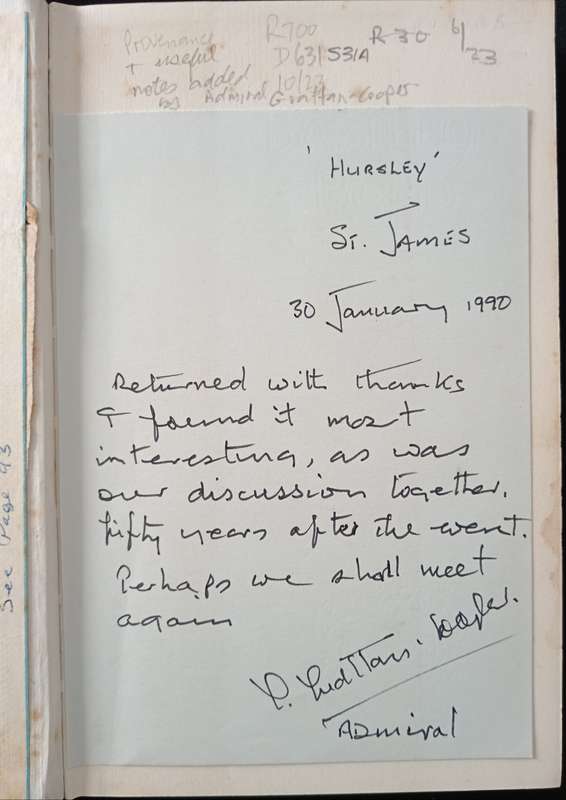 Provenance
+ useful
notes added
by Admiral Grattan-Cooper
R700
D63/531A
10/23
R 30
6/23
'HURSLEY'
ST. JAMES
30 January 1990
Returned with thanks
& found it most
interesting, as was
our discussion together,
fifty years after the event.
Perhaps we shall meet
again
Grattan-Cooper.
ADmiral
See Page 93